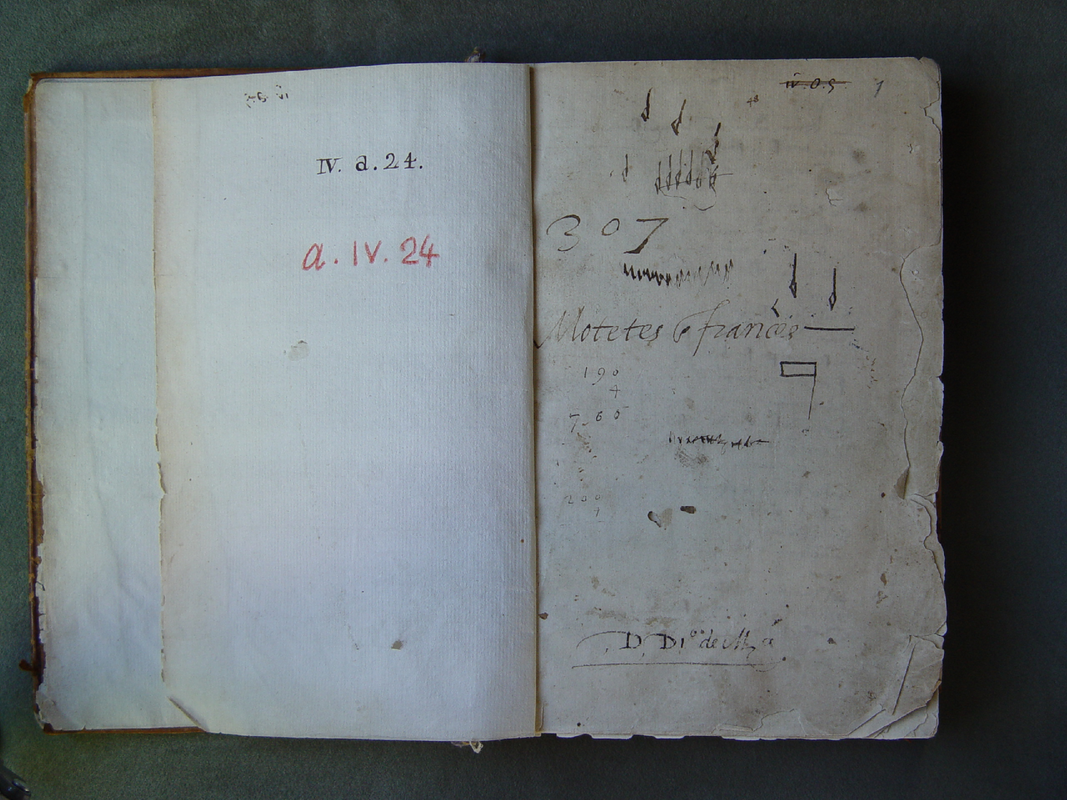 IV. a. 24.
a. IV. 24
iv. o. 9
307
Motetes francés
190
4
7.60
200
1
D. D.º de Mᵃ